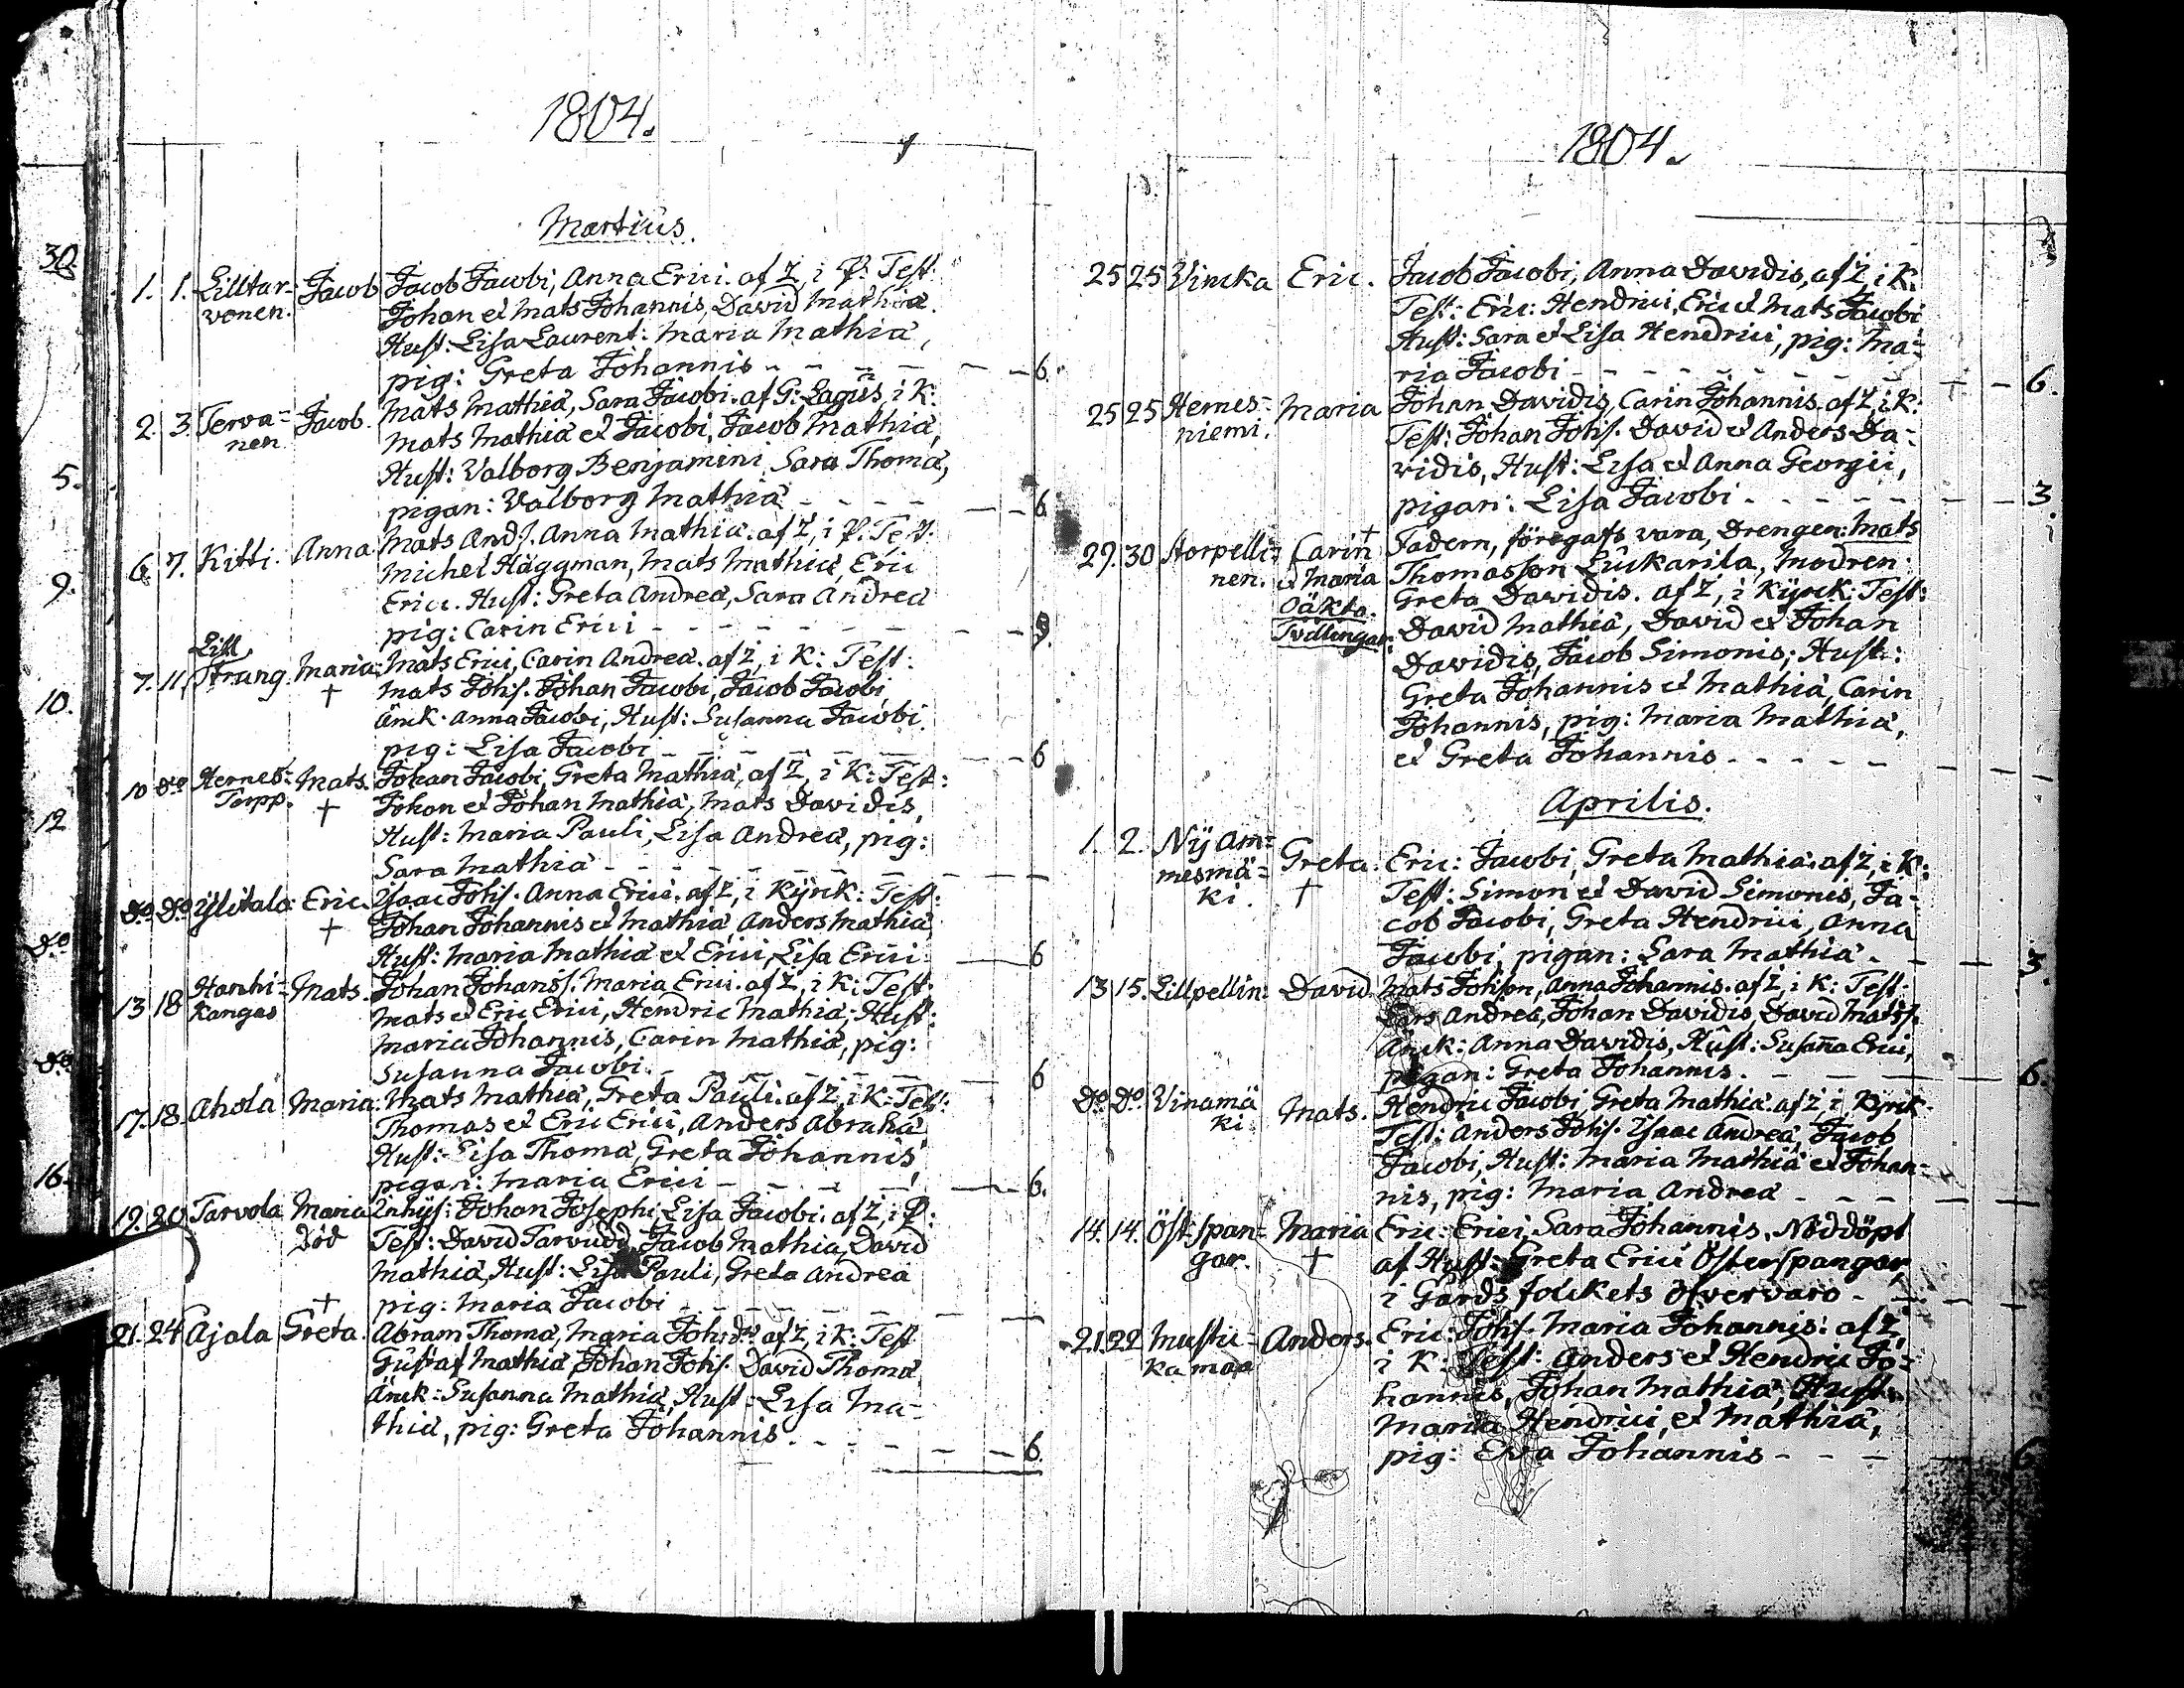 1804.
Martius.
30.
1. 1. Lilltar- Jacob Jacob Jacobi, Anna Erici. af Z, i P: Test:
vonen. Johan et Mats Johannis, David Mathiæ.
Hust: Lisa Laurent: Maria Mathiæ,
pig: Greta Johannis - - - - - 6.
2. 3. Terva- Jacob. Mats Mathiæ, Sara Jacobi. af G: Lagus, i K:
nen Mats Mathiæ et Jacobi, Jacob Mathiæ,
5. Hust: Valborg Benjamini, Sara Thomæ,
pigan: Valborg Mathiæ - - - - - 6
6. 7. Kitti. Anna. Mats And:s. Anna Mathiæ. af Z, i P: Test:
9. Michel Häggman, Mats Mathiæ, Eric
Erici. Hust: Greta Andreæ, Sara Andreæ
pig: Carin Erici - - - - -
Lill
7. 11. Strang. Maria. Mats Erici, Carin Andreæ. af Z, i K: Test:
10. † Mats Joh:s. Johan Jacobi, Jacob Jacobi
Änck. Anna Jacobi, Hust: Susanna Jacobi
pig: Lisa Jacobi - - - - - 6
10 do Hernes- Mats. Johan Jacobi, Greta Mathiæ, af Z, i K: Test:
Torpp. † Johan et Johan Mathiæ, Mats Davidis,
12 Hust: Maria Pauli, Lisa Andreæ, pig:
Sara Mathiæ - - - - -
do do Ylitalo Eric. Isaac Joh:s. Anna Erici. af Z, i Kyrk: Test:
† Johan Johannis et Mathiæ, Anders Mathiæ,
do Hust: Maria Mathiæ et Erici, Lisa Erici - 6
13 18 Hanhi- Mats. Johan Johans:s. Maria Erici. af Z, i K: Test:
kangas Mats et Eric Erici, Hendric Mathiæ, Hust:
Maria Johannis, Carin Mathiæ, pig:
do Susanna Jacobi. - - - - - 6
17. 18. Ahola Maria. Mats Mathiæ, Greta Pauli. af Z, i K: Test:
Thomas et Eric Erici, Anders Abrahæ
Hust: Lisa Thomæ, Greta Johannis,
16. pigan: Maria Erici - - - - - 6.
19. 20. Tarvola Maria Inhys: Johan Josephi, Lisa Jacobi. af Z, i P:
Död Test: David Tarvudd, Jacob Mathiæ, David
Mathiæ, Hust: Lisa Pauli, Greta Andreæ
† pig: Maria Jacobi - - - - -
21. 24. Ajala Greta. Abram Thomæ, Maria Joh:do af Z, i K: Test
Gustaf Mathiæ, Johan Joh:s. David Thomæ
Änck: Susanna Mathiæ, Hust: Lisa Ma-
thiæ, pig: Greta Johannis. - - - - 6.
1804.
25 25 Vincka Eric. Jacob Jacobi, Anna Davidis, af Z, i K:
Test: Eric: Hendrici, Eric et Mats Jacobi
Hust: Sara et Lisa Hendrici, pig: Ma-
ria Jacobi - - - - - 6.
25 25 Hernes- Maria Johan Davidis, Carin Johannis. af Z, i K:
niemi. Test: Johan Joh:s. David et Anders Da-
vidis, Hust: Lisa et Anna Georgii,
pigan: Lisa Jacobi - - - - - 3
29. 30 Storpelli- Carin † Fadern, föregafs vara, Drengen: Mats
nen. et Maria Thomasson Luckarila, Modren:
Oäkta. Greta Davidis. af Z, i Kyrck: Test:
Tvillingar. David Mathiæ, David et Johan
Davidis, Jacob Simonis; Hust:
Greta Johannis et Mathiæ, Carin
Johannis, pig: Maria Mathiæ,
et Greta Johannis - - - - -
Aprilis.
1. 2. Ny Am- Greta. Eric: Jacobi, Greta Mathiæ. af Z, i K:
mesmä- † Test: Simon et David Simonis, Ja-
ki. cob Jacobi, Greta Hendrici, Anna
Jacobi, pigan: Sara Mathiæ - - - 3.
13 15. Lillpellin: David Mats Johson, Anna Johannis. af Z, i K: Test:
Lars Andreæ, Johan Davidis, David Mats:s.
Änck: Anna Davidis, Hust: Susanna Erici,
pigan: Greta Johannis. - - - 6.
do do Vinamä Mats. Hendric Jacobi, Greta Mathiæ. af Z i Kyrk.
ki Test: Anders Joh:s. Isaac Andreæ, Jacob
Jacobi, Hust: Maria Mathiæ et Johan-
nis, pig: Maria Andreæ - - - - -
14. 14. Öst:span- Maria Eric: Erici, Sara Johannis. Nöddöpt
gar. † af Hust: Greta Erici Österspangar,
i Gårds folckets öfvervaro - - - -
21. 22 Musti- Anders. Eric: Joh:s. Maria Johannis. af Z,
kamaa i K: Test: Anders et Hendric Jo-
hannis, Johan Mathiæ, Hust:
Maria Hendrici, et Mathiæ,
pig: Eva Johannis - - - 6